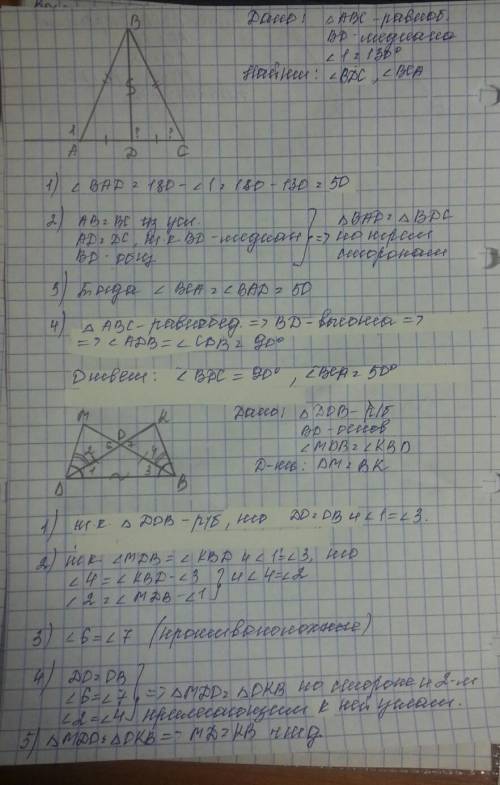 B
Дано: ∠ABC - равноб.
BD - медиана
∠1 = 130°
Найти: ∠BDC, ∠BCA
1
? ?
A D C
1) ∠BAD = 180 - ∠1 = 180 - 130 = 50
2) AB = BC из усл.
AD = DC, т.к BD - медиан
BD - общ
=> △BAD = △BDC
по трем
сторонам
3) Тогда ∠BCA = ∠BAD = 50
4) △ABC - равнобед. => BD - высота =>
=> ∠ADB = ∠CDB = 90°
Ответ: ∠BDC = 90°, ∠BCA = 50°
M K
O
6 7
2 4
1 3
D B
Дано: △DOB - р/б
BD - основ
∠MDB = ∠KBD
Д-ть: DM = BK
1) т.к. △DOB - р/б, то DO = OB и ∠1 = ∠3.
2) т.к. ∠MDB = ∠KBD и ∠1 = ∠3, то
∠4 = ∠KBD - ∠3
∠2 = ∠MDB - ∠1
} и ∠4 = ∠2
3) ∠6 = ∠7 (противоположные)
4) DO = OB
∠6 = ∠7
∠2 = ∠4
=> △MDO = △OKB по стороне и 2-м
прилегающим к ней углам.
5) △MDO = △OKB => MD = KB чтд.